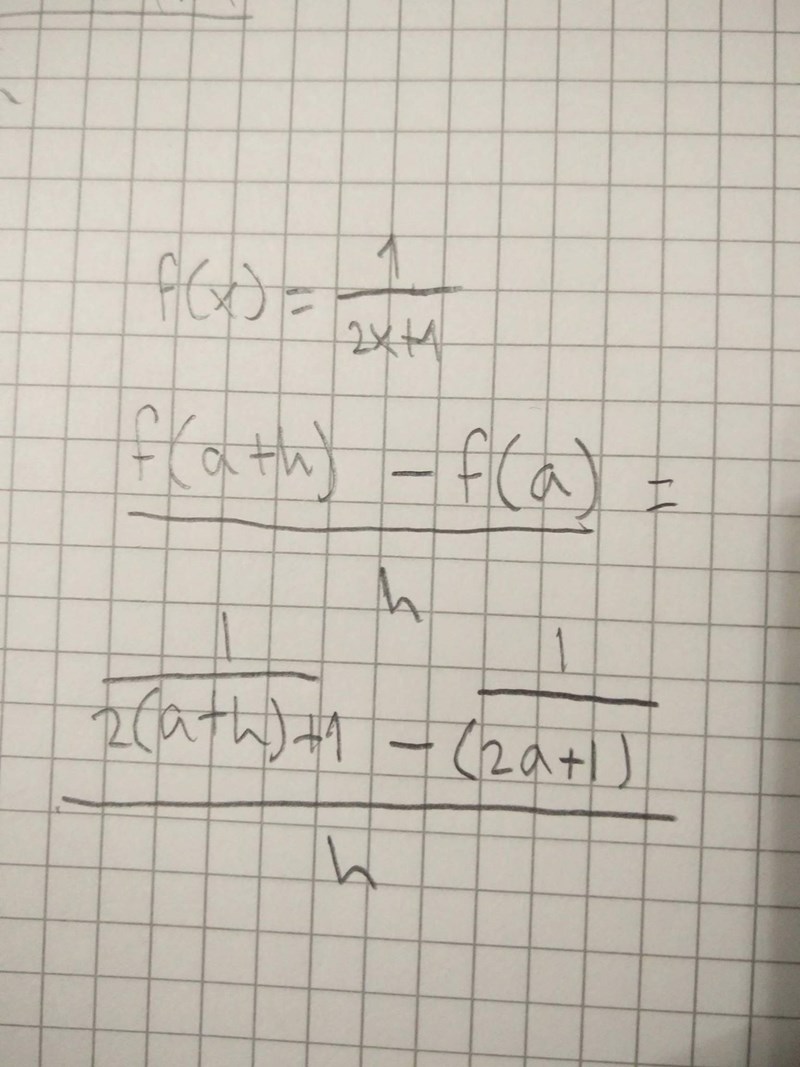 f(x) = 1/(2x+1)
(f(a+h) - f(a))/h =
(1/(2(a+h)+1) - 1/(2a+1))/h